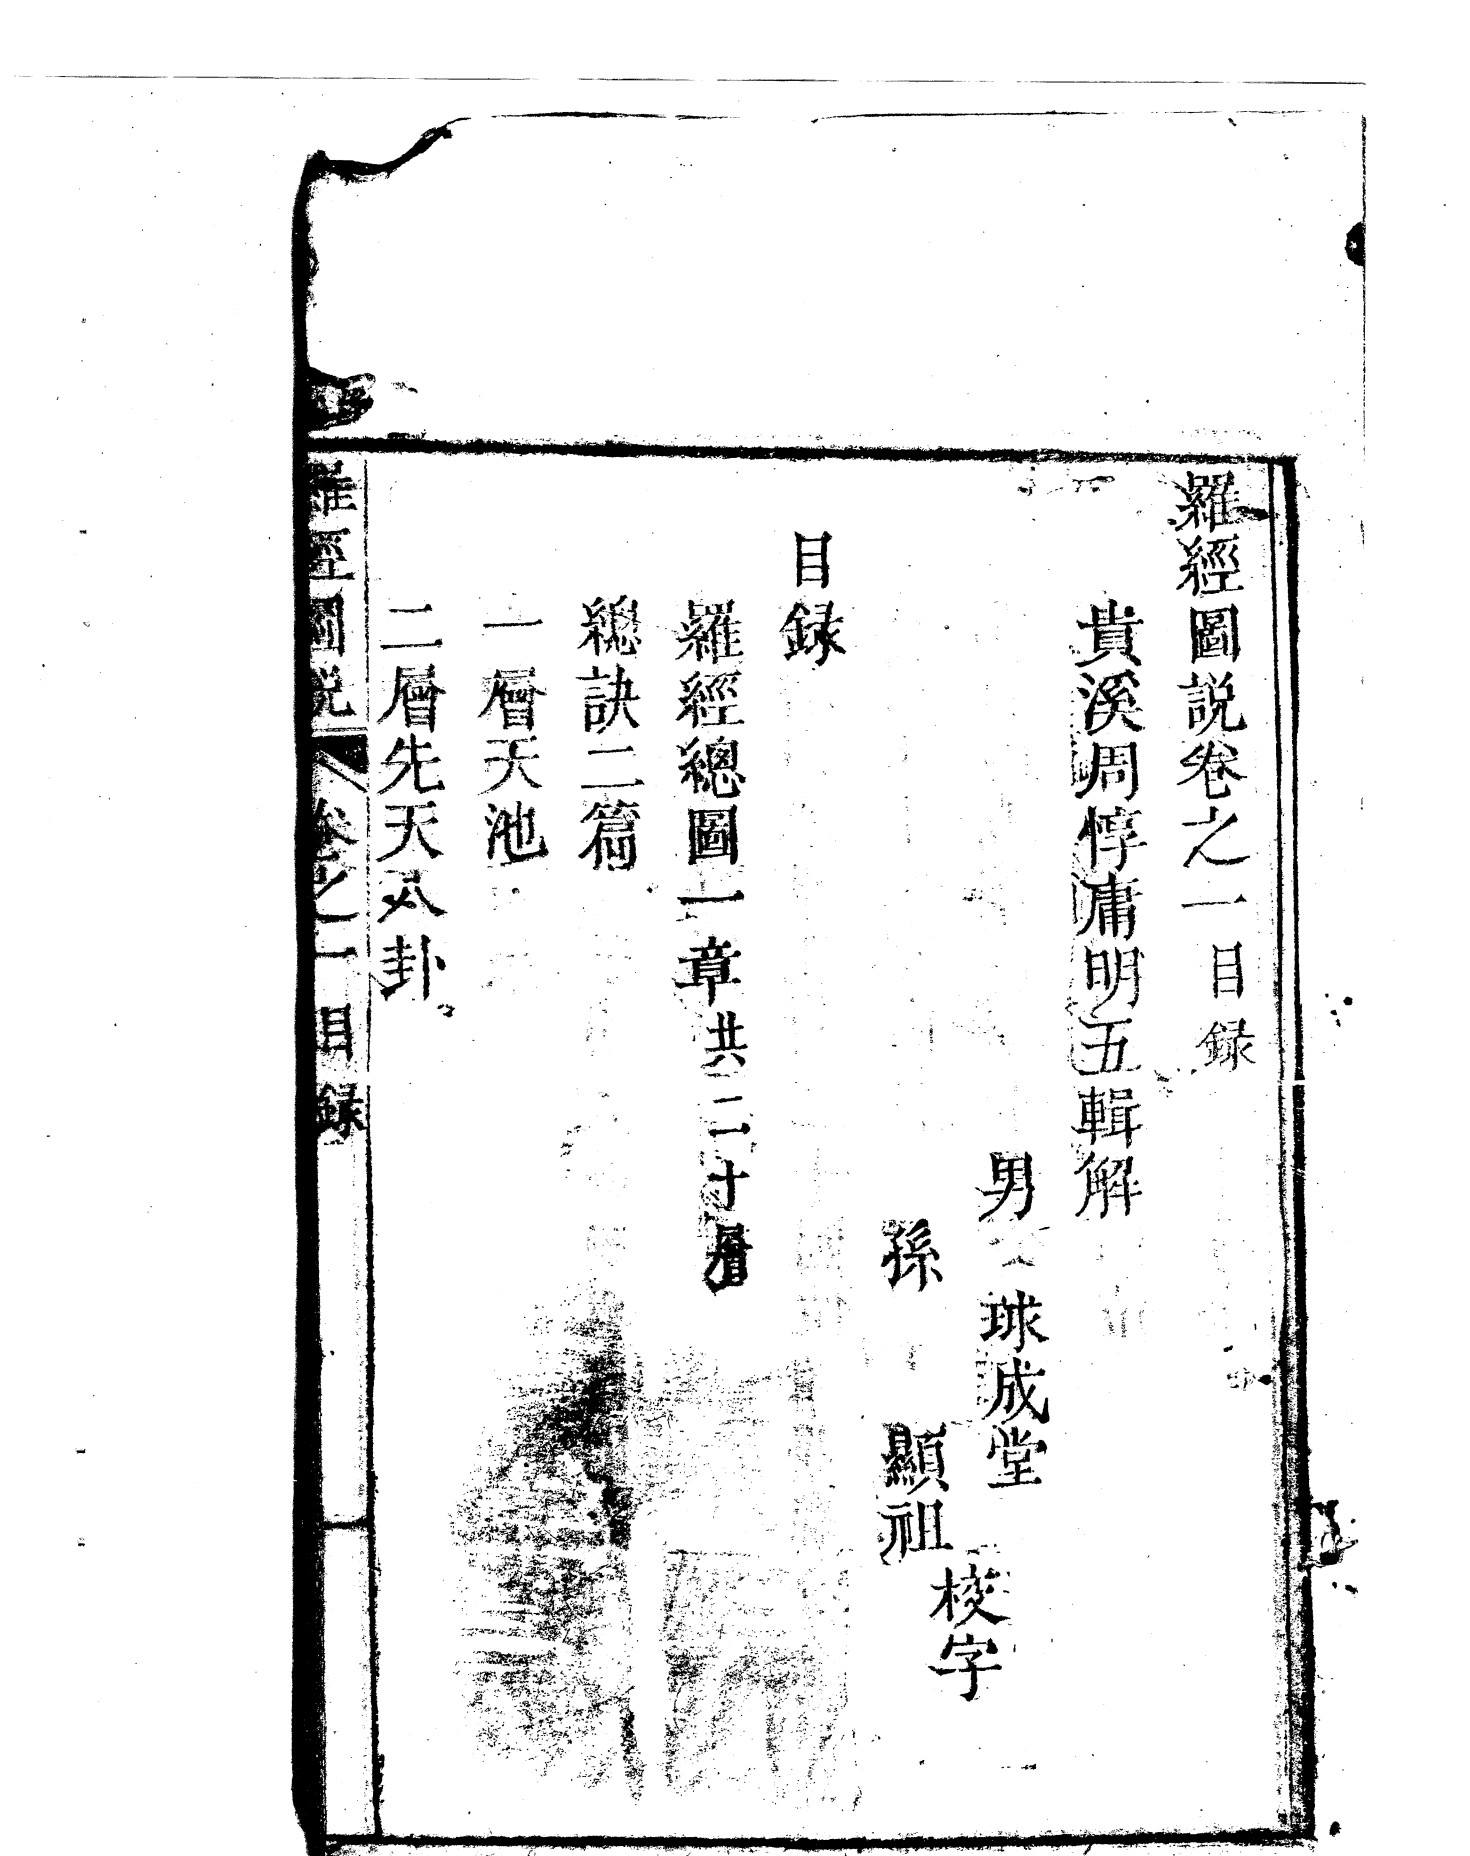 羅經圖説卷之一目録
貴溪周惇庸明五輯解
男球成堂
孫顯祖
校字
目録
羅經總圖一章共二十層
總訣二篇
一層天池
二層先天八卦
羅經圖説
卷之一目録